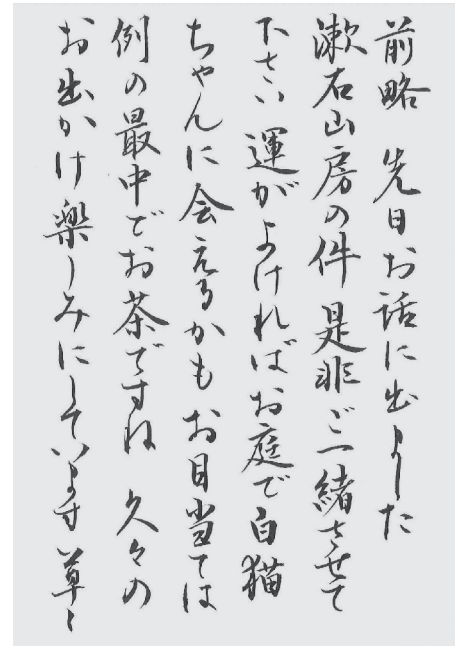 前略 先日お話に出ました
漱石山房の件 是非ご一緒させて
下さい 運がよければお庭で白猫
ちゃんに会えるかも お目当ては
例の最中でお茶ですね 久々の
お出かけ楽しみにしています 草々